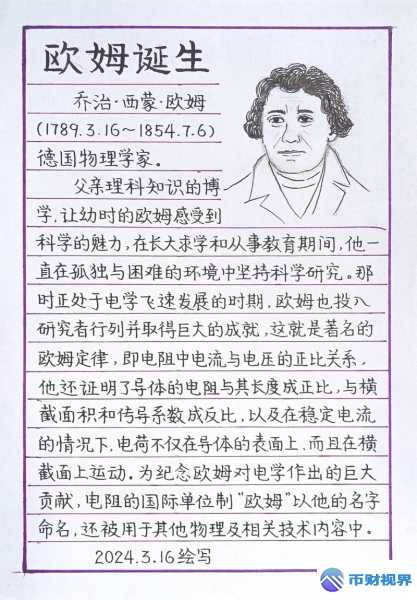 欧姆诞生
乔治·西蒙·欧姆
(1789.3.16~1854.7.6)
德国物理学家。
父亲理科知识的博
学,让幼时的欧姆感受到
科学的魅力,在长大求学和从事教育期间,他一
直在孤独与困难的环境中坚持科学研究。那
时正处于电学飞速发展的时期,欧姆也投入
研究者行列并取得巨大的成就,这就是著名的
欧姆定律,即电阻中电流与电压的正比关系.
他还证明了导体的电阻与其长度成正比,与横
截面积和传导系数成反比,以及在稳定电流
的情况下,电荷不仅在导体的表面上,而且在横
截面上运动。为纪念欧姆对电学作出的巨大
贡献,电阻的国际单位制“欧姆”以他的名字
命名,还被用于其他物理及相关技术内容中。
2024.3.16绘写
币财视界